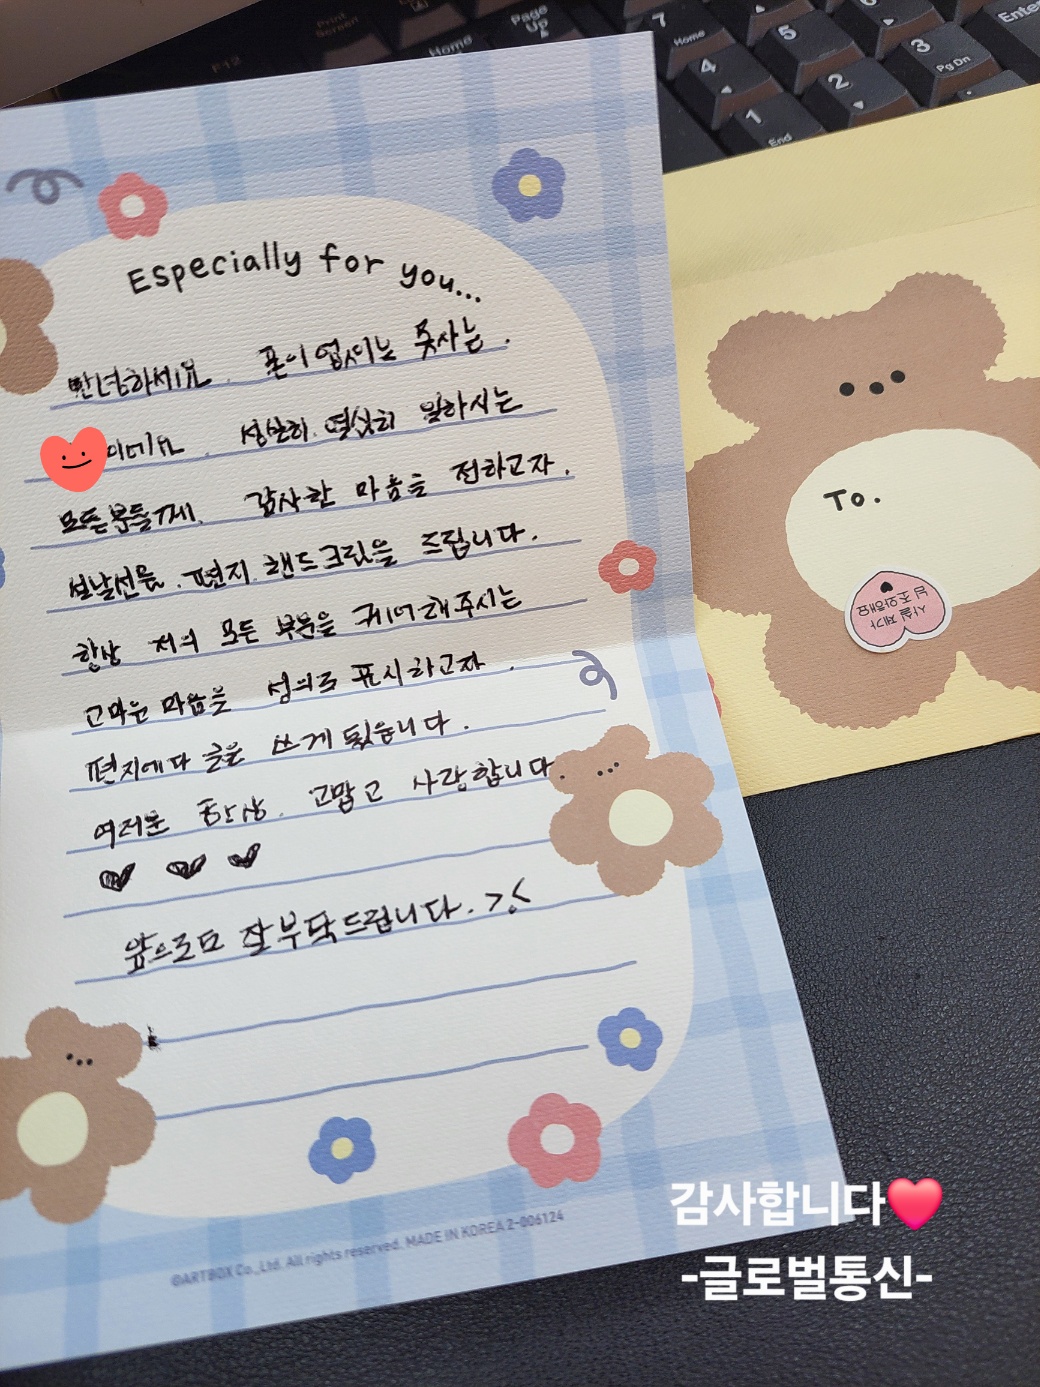 Print Screen
F12
Home
Page Up
7 Home
4
1 End
5
2
3 Pg Dn
Enter
Especially for you...
안녕하세요. 폰이 없이는 못사는.
이에요. 성실히. 열심히 일하시는
모든분들께. 감사한 마음을 전하고자.
설날선물. 편지. 핸드크림을 드립니다.
항상 저의 모든 부분을 케어해주시는
고마운 마음을 성의로 표시하고자.
편지에다 글을 쓰게 됬습니다.
여러분 항상. 고맙고 사랑합니다.
앞으로도 잘 부탁드립니다. >.<
©ARTBOX Co.,Ltd. All rights reserved. MADE IN KOREA 2-006124
To.
사실 제가
님 조아해요
감사합니다❤️
-글로벌통신-